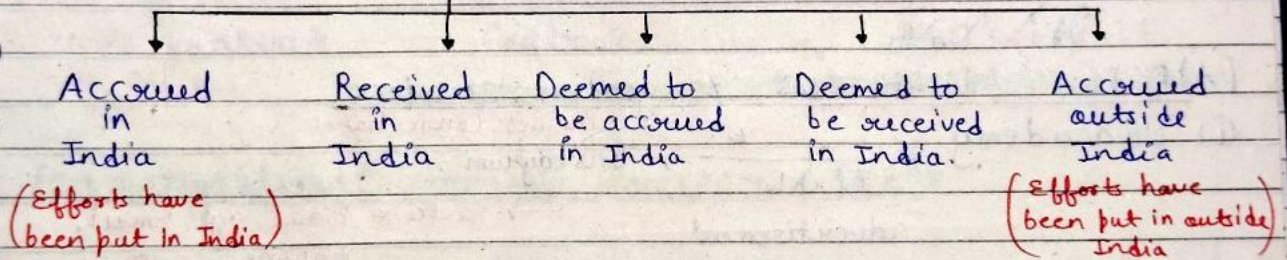 Accrued
in
India
(Efforts have
been put in India)
Received
in
India
Deemed to
be accrued
in India
Deemed to
be received
in India.
Accrued
outside
India
(Efforts have
been put in outside
India)